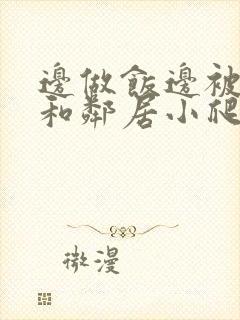 邊做飯邊被
和鄰居小爬
微漫